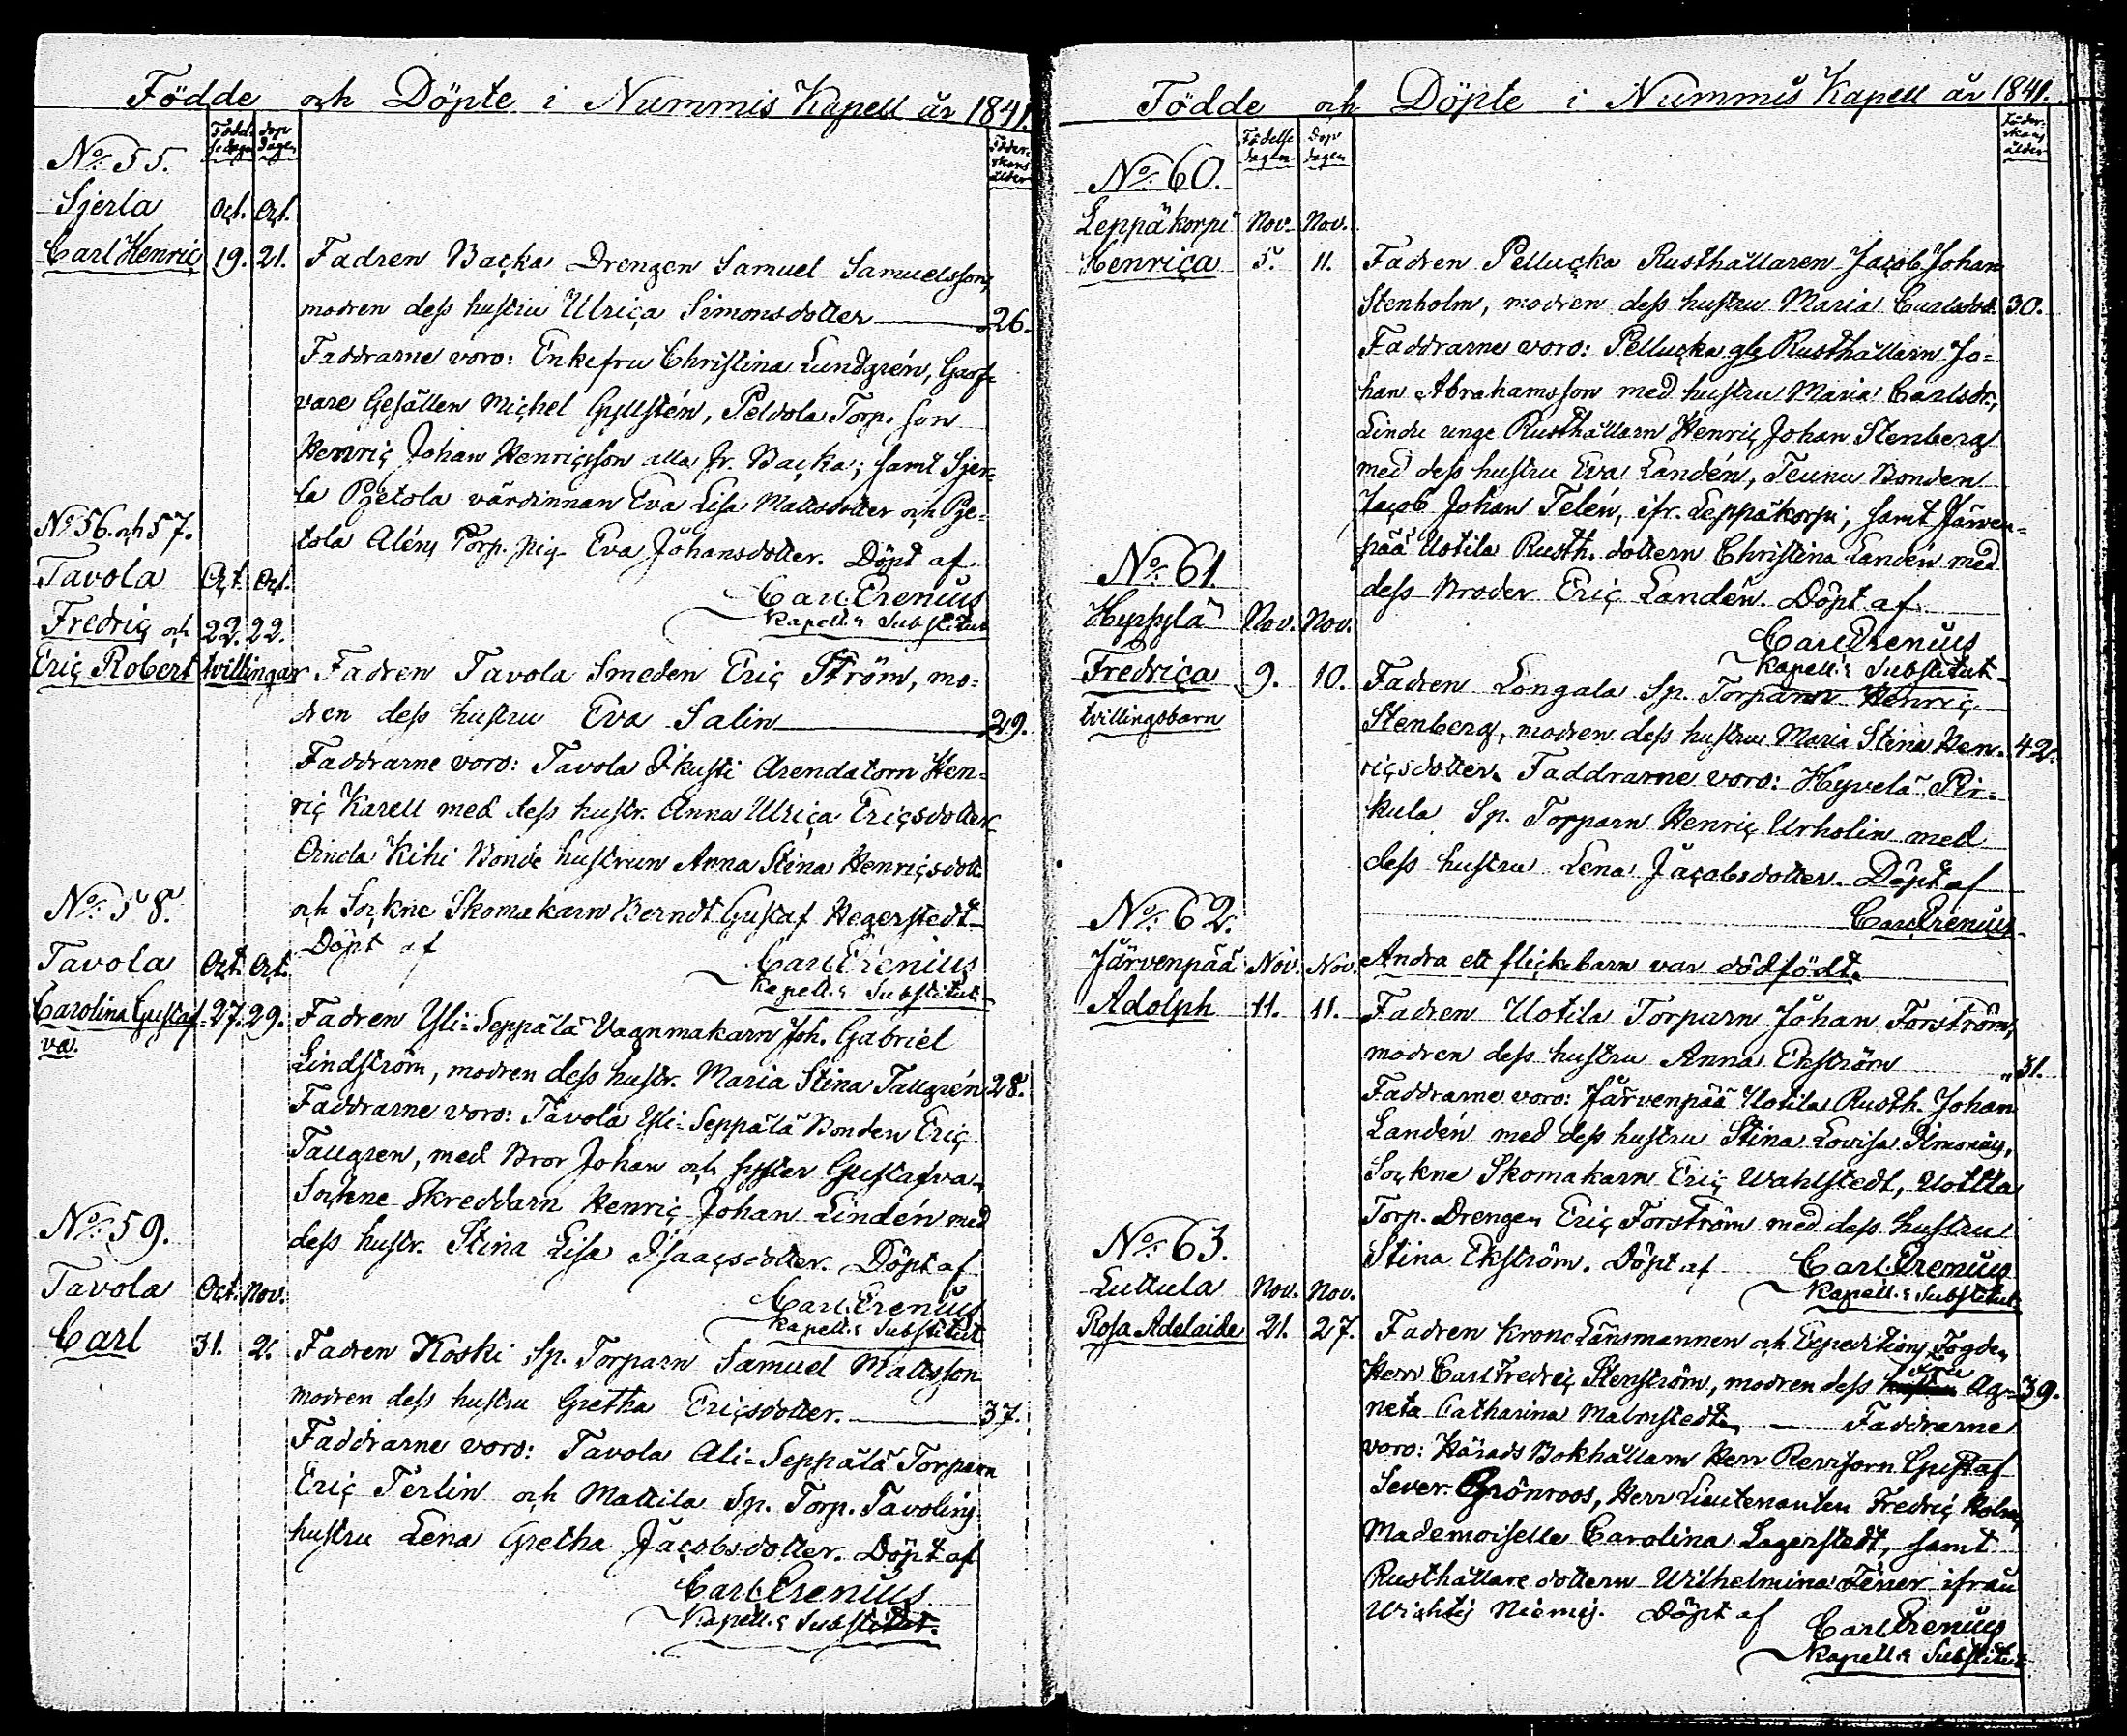 Födde och Döpte i Nummis Kapell år 1841.
Födelsedagen
Dop dagen
Föder-skans ålder
No. 55.
Sjerla Oct. Oct.
Carl Henric 19. 21. Fadren Backa Drengen Samuel Samuelsson,
modren dess hustru Ulrica Simonsdotter 26.
Faddrarne voro: Enkefru Christina Lundgrén, Garf-
vare Gesällen Michel Gyllstén, Peldola Torp. son
Henric Johan Henricsson alla fr. Backa; samt Sjer-
la Pietola värdinnan Eva Lisa Mattsdotter och Pie-
tola Aléns Torp. pig. Eva Johansdotter. Döpt af
Carl Erenius
Kapell.s Substitut
No 56. och 57.
Tavola Oct. Oct.
Fredric och 22. 22.
Eric Robert tvillingar Fadren Tavola Smeden Eric Ström, mo-
dren dess hustru Eva Salin 29.
Faddrarne voro: Tavola Arendatorn Hen-
ric Karell med dess hustr. Anna Ulrica Ericsdotter,
Oinola Kihi Bonde hustrun Anna Stina Henricsdott.
och Sockne Skomakarn Berndt Gustaf Hegerstedt
Döpt af
Carl Erenius
Kapell.s Substitut
No. 58.
Tavola Oct. Oct.
Carolina Gustaf- 27. 29. Fadren Yli-Seppälä Vagnmakarn Joh. Gabriel
va.
Lindström, modren dess hustr. Maria Stina Tallgrén 28.
Faddrarne voro: Tavola Yli-Seppälä Bonden Eric
Tallgren, med Bror Johan och syster Gustafva
Sockne Skreddarn Henric Johan Lindén med
dess hustr. Stina Lisa Isaacsdotter. Döpt af
Carl Erenius
Kapell.s Substitut
No. 59.
Tavola Oct. Nov.
Carl 31. 2. Fadren Koski Sp. Torparn Samuel Mattsson
modren dess hustru Gretha Ericsdotter. 37.
Faddrarne voro: Tavola Ali-Seppälä Torparn
Eric Terlin och Mattila Sp. Torp. Tavolins
hustru Lena Gretha Jacobsdotter. Döpt af
Carl Erenius
Kapell.s Substitut.
Födde och Döpte i Nummis Kapell år 1841.
Födelse dagen
Dop dagen
Föder-skans ålder
No. 60.
Leppäkorpi Nov. Nov.
Henrica 5. 11. Fadren Pellucka Rusthållaren Jacob Johan
Stenholm, modren dess hustru Maria Carlsdot. 30.
Faddrarne voro: Pellucka gl. Rusthållarn Jo-
han Abrahamsson med hustru Maria Carlsdr.,
Lindu unge Rusthållarn Henric Johan Stenberg
med dess hustru Eva Landén, Teunu Bonden
Jacob Johan Telén, ifr. Leppäkorpi, samt Järven-
pää Uotila Rusth. dottern Christina Landén med
dess Broder Eric Landén. Döpt af
Carl Erenius
Kapell.s Substitut
No. 61.
Hyrsylä Nov. Nov.
Fredrica 9. 10. Fadren Longala Sp. Torparn Henric
tvillingsbarn
Stenberg, modren dess hustru Maria Stina Hen- 42.
ricsdotter. Faddrarne voro: Hyvelä Pir-
kula Sp. Torparn Henric Urholin med
dess hustru Lena Jacobsdotter. Döpt af
Carl Erenius
Andra ett flickebarn var dödfödt.
No. 62.
Järvenpää Nov. Nov.
Adolph 11. 11. Fadren Uotila Torparn Johan Forström,
modren dess hustru Anna Ekström 31.
Faddrarne voro: Järvenpää Uotila Rusth. Johan
Landén med dess hustru Stina Lovisa
Sockne Skomakarn Eric Wahlstedt, Uotila
Torp. Drengen Eric Forström med dess hustru
Stina Ekström. Döpt af Carl Erenius
Kapell.s Substitut
No. 63.
Luttula Nov. Nov.
Rosa Adelaide 21. 27. Fadren Krono Länsmannen och Expeditions Fogden
Herr Carl Fredric Stenström, modren dess hustru Fru Ag- 39.
neta Catharina Malmstedt. — Faddrarne
voro: Härads Bokhållarn Herr Revisorn Gustaf
Sever. Grönroos, Herr Lieutenanten Fredric Holm,
Mademoiselle Carolina Lagerstedt, samt
Rusthållare dottern Wilhelmina ifrån
Wichtis Niemis. Döpt af Carl Erenius
Kapell.s Substitut